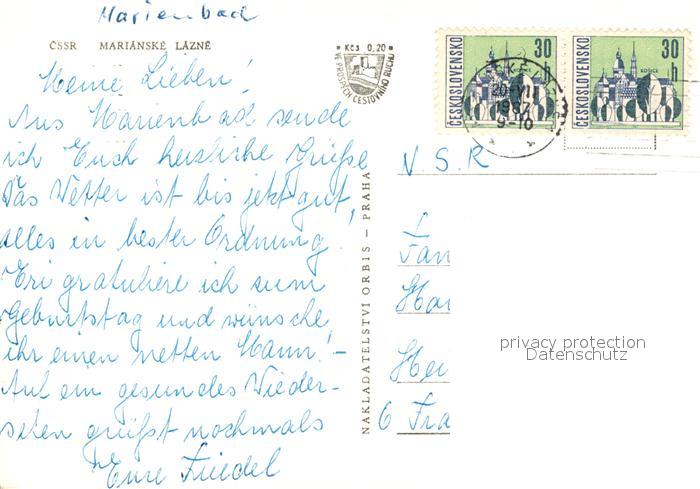 Marienbad
ČSSR MARIÁNSKÉ LÁZNĚ
Kčs 0,20
VE PROSPĚCH CESTOVNÍHO RUCHU
ČESKOSLOVENSKO 30 h
KOŠICE
ČESKOSLOVENSKO 30 h
KOŠICE
20. VII
1967
9-10
Meine Lieben!
Aus Marienbad sende
ich Euch herzliche Grüße
Das Wetter ist bis jetzt gut,
alles in bester Ordnung!
Eri gratuliere ich zum
Geburtstag und wünsche
ihr einen netten Mann! –
Auf ein gesundes Wieder-
sehen grüßt nochmals
Eure Friedel
NAKLADATELSTVÍ ORBIS – PRAHA
N. S. R
Fam
Ha
Hei
6 Fra
privacy protection
Datenschutz